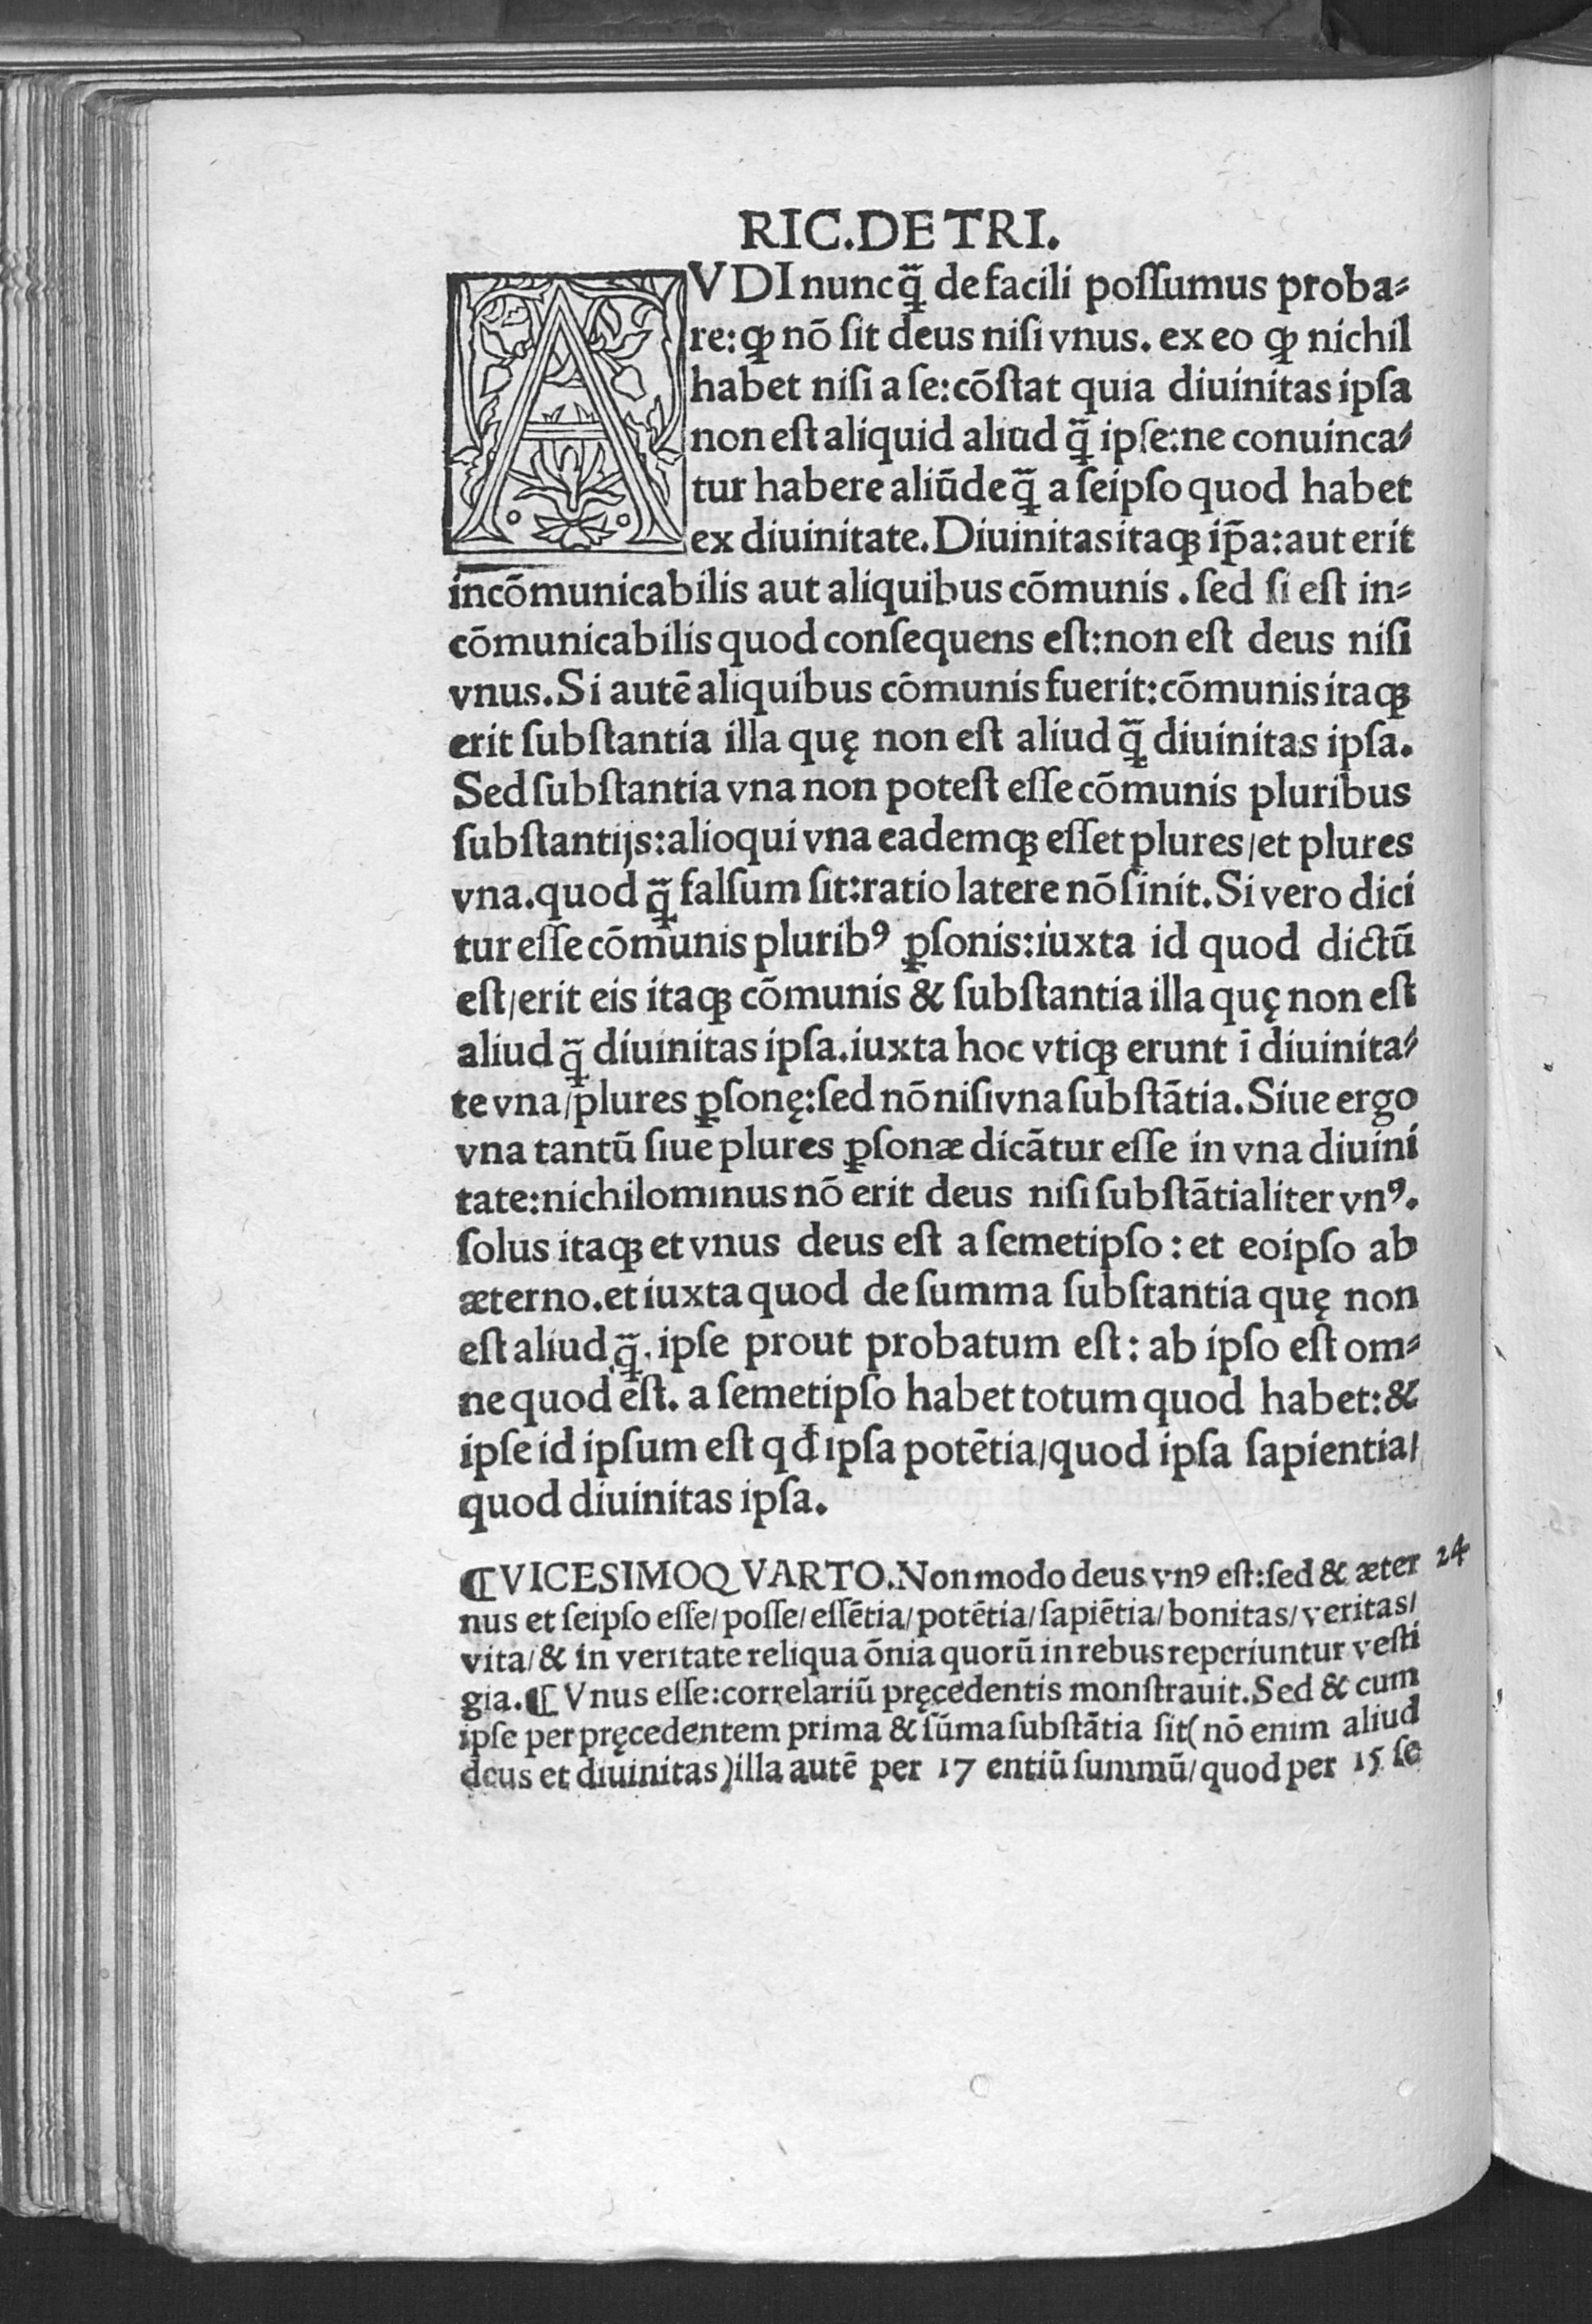 RIC.DE TRI.
AVDI nunc q̃ de facili poſſumus proba⸗
re:ꝙ nō ſit deus niſi vnus. ex eo ꝙ nichil
habet niſi a ſe:cōſtat quia diuinitas ipſa
non eſt aliquid aliud q̃ ipſe:ne conuinca⸗
tur habere aliūde q̃ a ſeipſo quod habet
ex diuinitate.Diuinitas itaqꝫ ip̄a:aut erit
incōmunicabilis aut aliquibus cōmunis . ſed ſi eſt in⸗
cōmunicabilis quod conſequens eſt:non eſt deus niſi
vnus.Si autē aliquibus cōmunis fuerit:cōmunis itaqꝫ
erit ſubſtantia illa quę non eſt aliud q̃ diuinitas ipſa.
Sed ſubſtantia vna non poteſt eſſe cōmunis pluribus
ſubſtantijs:alioqui vna eademqꝫ eſſet plures/et plures
vna.quod q̃ falſum ſit:ratio latere nō ſinit.Si vero dici
tur eſſe cōmunis pluribꝰ ꝑſonis:iuxta id quod dictū
eſt/erit eis itaqꝫ cōmunis & ſubſtantia illa quę non eſt
aliud q̃ diuinitas ipſa.iuxta hoc vtiqꝫ erunt ī diuinita⸗
te vna/plures ꝑſonę:ſed nō niſi vna ſubſtātia.Siue ergo
vna tantū ſiue plures ꝑſonæ dicātur eſſe in vna diuini
tate:nichilominus nō erit deus niſi ſubſtātialiter vnꝰ.
ſolus itaqꝫ et vnus deus eſt a ſemetipſo : et eoipſo ab
æterno.et iuxta quod de ſumma ſubſtantia quę non
eſt aliud q̃ ipſe prout probatum eſt: ab ipſo eſt om⸗
ne quod eſt. a ſemetipſo habet totum quod habet:&
ipſe id ipſum eſt qđ ipſa potētia/quod ipſa ſapientia/
quod diuinitas ipſa.
¶VICESIMOQVARTO.Non modo deus vnꝰ eſt:ſed & æter 24
nus et ſeipſo eſſe/poſſe/eſſētia/potētia/ſapiētia/bonitas/veritas/
vita/& in veritate reliqua ōnia quorū in rebus reperiuntur veſti
gia.¶ Vnus eſſe:correlariū pręcedentis monſtrauit.Sed & cum
ipſe per pręcedentem prima & ſūma ſubſtātia ſit( nō enim aliud
deus et diuinitas)illa autē per 17 entiū ſummū/quod per 15 ſe